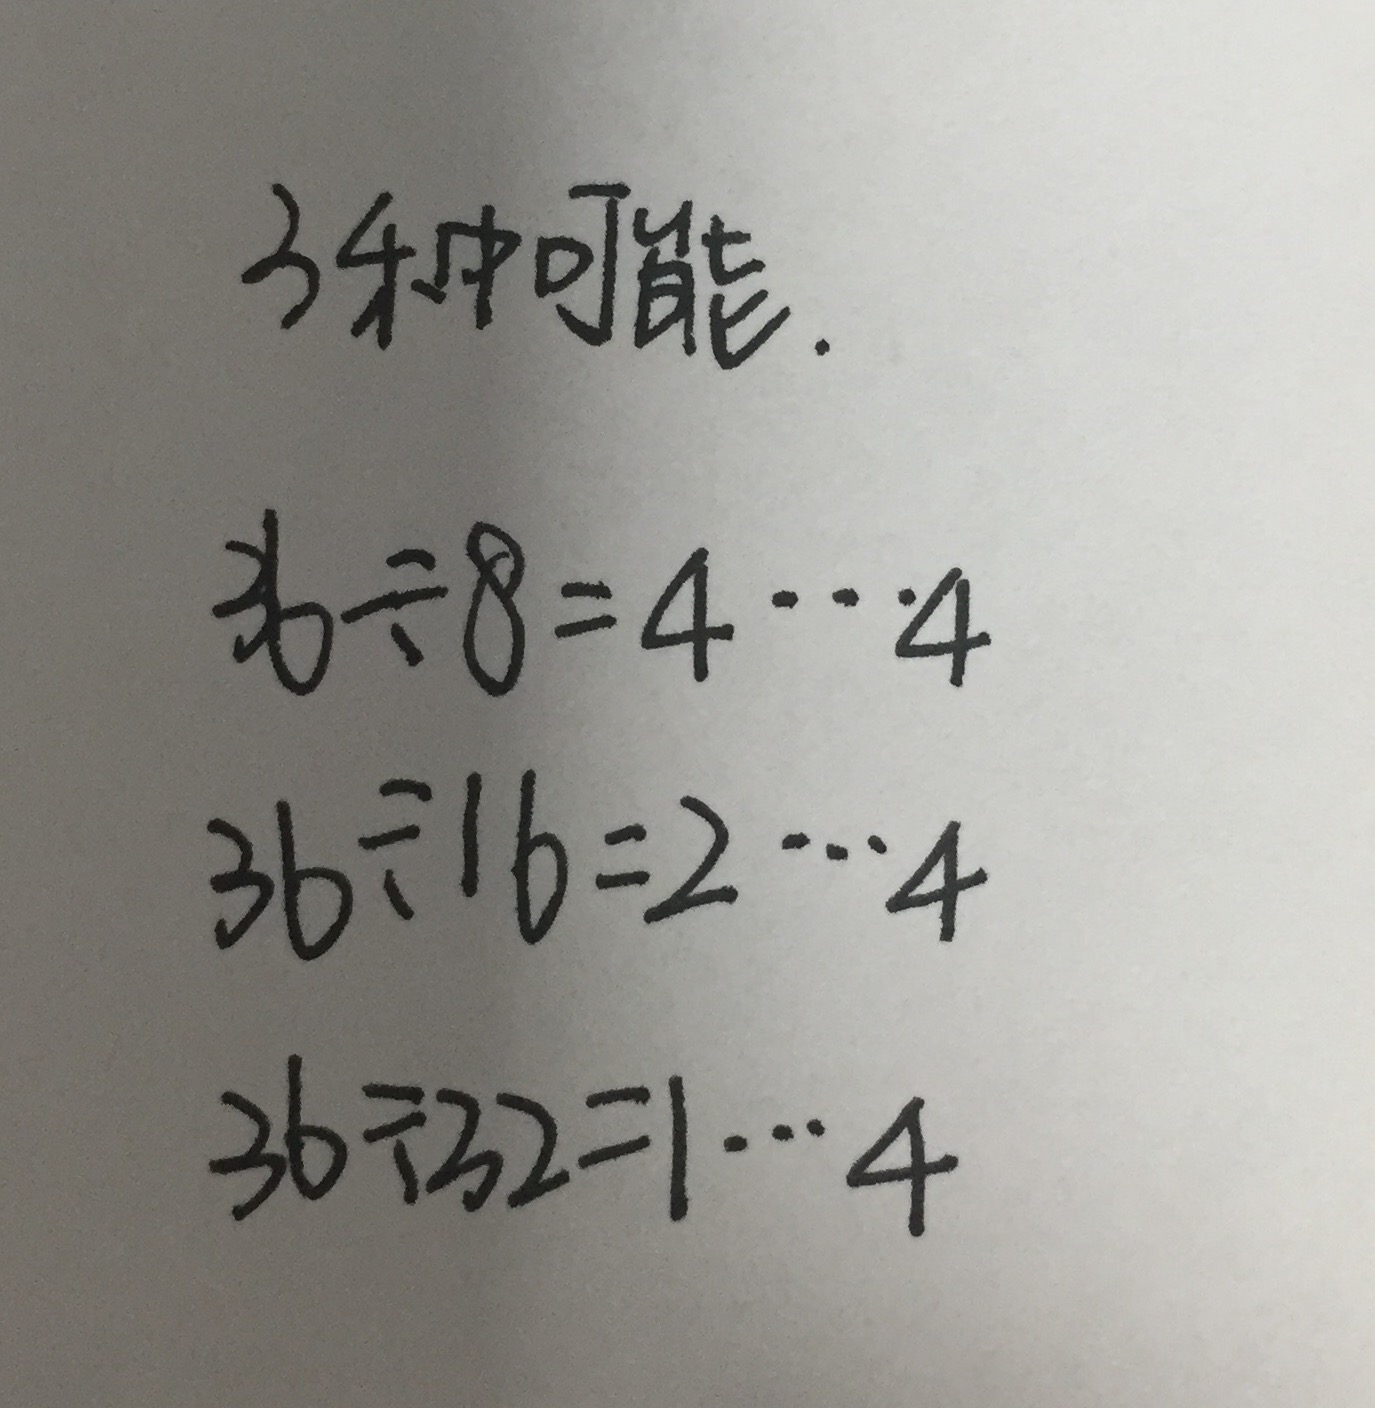 3种可能.
36÷8=4…4
36÷16=2…4
36÷32=1…4